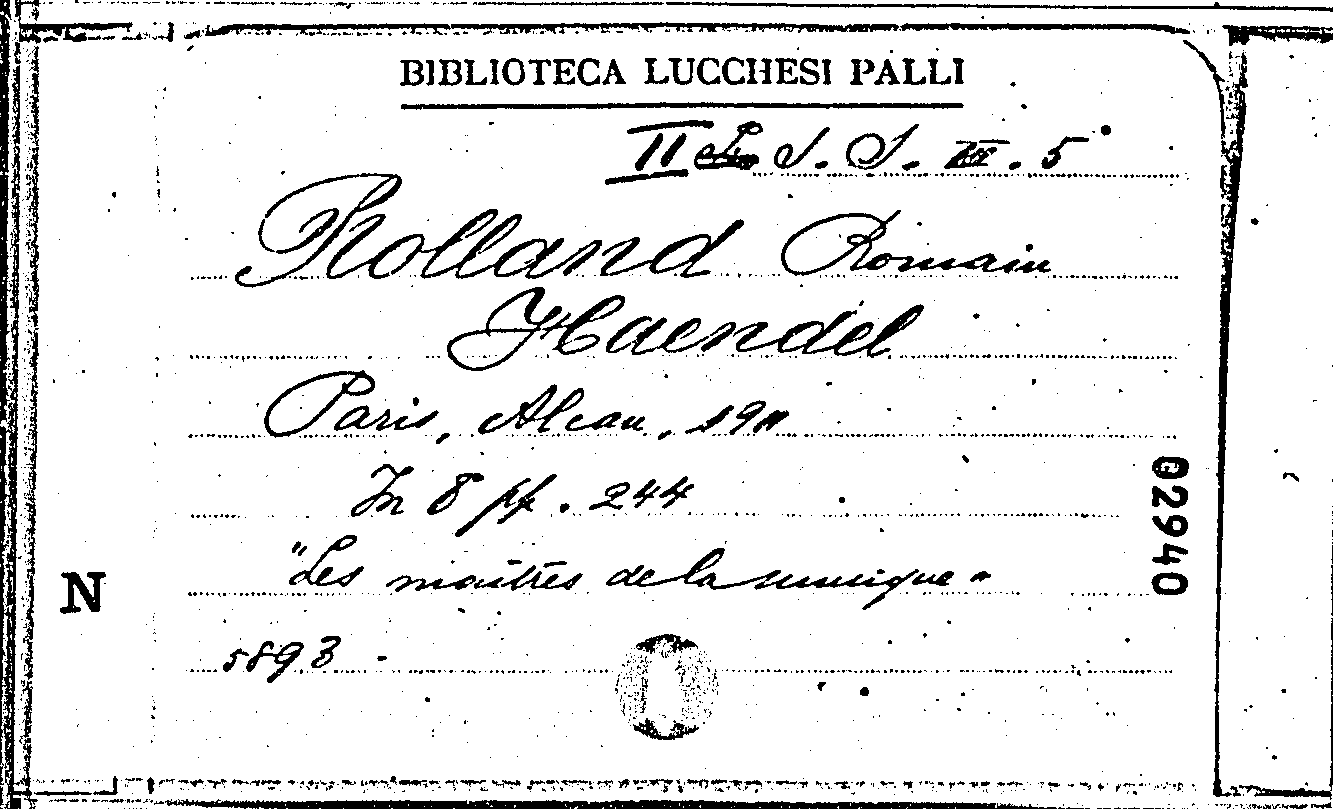 BIBLIOTECA LUCCHESI PALLI
II S. S. VII. 5
Rolland Romain
Haendel
Paris, Alcan, 1911
In 8 pp. 244
"Les maîtres de la musique"
5893
N
02940